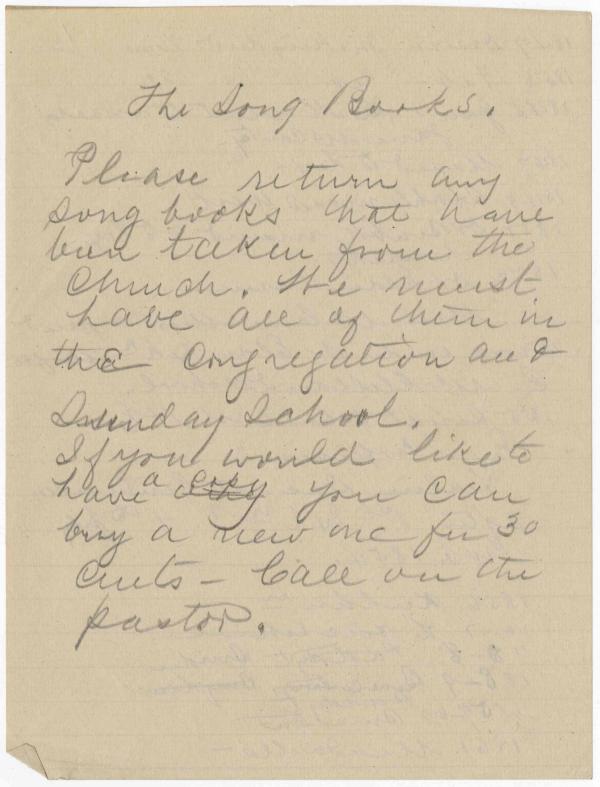 The Song Books.
Please return any
song books that have
been taken from the
Church. We must
have all of them in
the congregation and
Sunday School.
If you would like to
have a copy you can
buy a new one for 30
cents - Call on the
pastor.